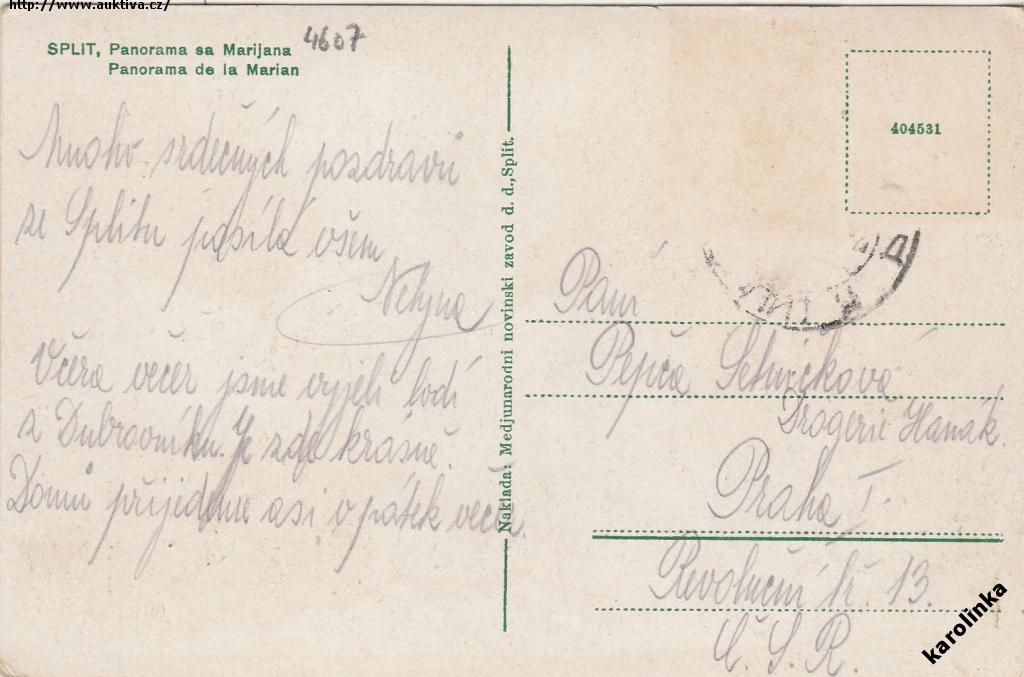 http://www.auktiva.cz/
4607
SPLIT, Panorama sa Marijana
Panorama de la Marian
Mnoho srdečných pozdravů
ze Splitu posílá všem
Včera večer jsme vyjeli lodí
z Dubrovníku. Je zde krásně.
Domů přijedeme asi v pátek večer.
Naklada: Medjunarodni novinski zavod d. d., Split.
404531
Paní
Pepča
Drogerie Hanák.
Praha I.
Revoluční tř. 13.
Č. S. R.
karolinka